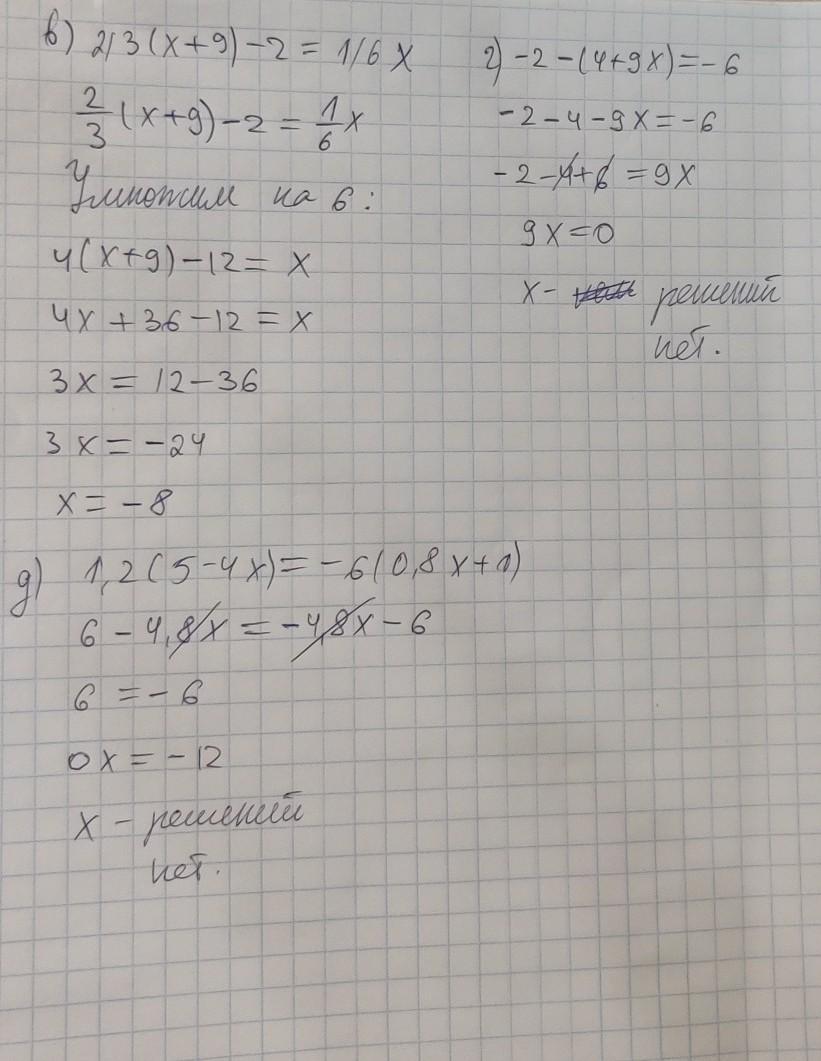 в) 2/3(x+9)-2=1/6x
2/3(x+9)-2=1/6x
Умножим на 6:
4(x+9)-12=x
4x+36-12=x
3x=12-36
3x=-24
x=-8
г) -2-(4+9x)=-6
-2-4-9x=-6
-2-4+6=9x
9x=0
x- решений
нет.
д) 1,2(5-4x)=-6(0,8x+1)
6-4,8x=-4,8x-6
6=-6
0x=-12
x - решений
нет.